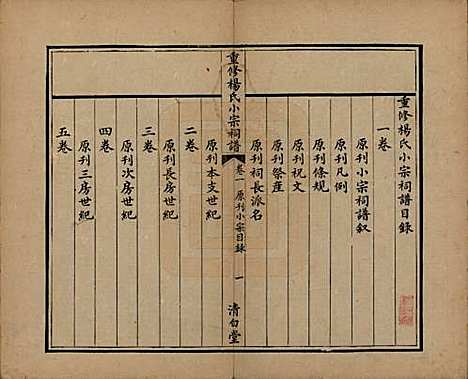 重修楊氏小宗祠譜目錄
一卷
原刊小宗祠譜敘
原刊凡例
原刊條規
原刊祝文
原刊祭產
原刊祠長派名
重修楊氏小宗祠譜
卷一
原刊小宗目錄
一
清白堂
二卷
原刊本支世紀
三卷
原刊長房世紀
四卷
原刊次房世紀
五卷
原刊三房世紀